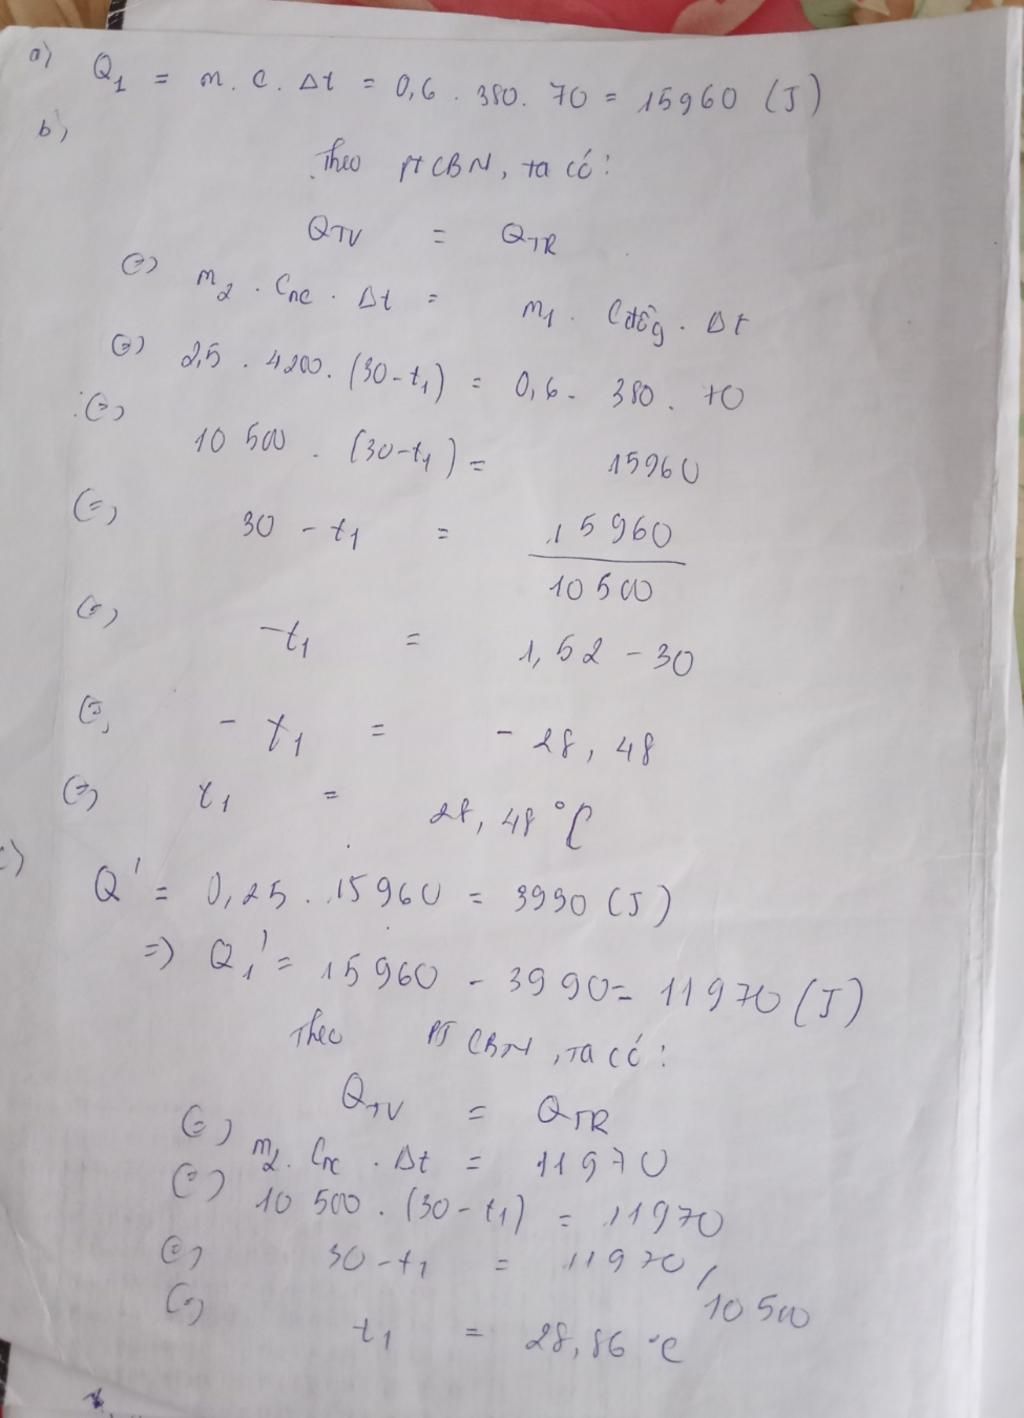 a) Q1 = m. C. Δt = 0,6 . 380. 70 = 15960 (J)
b)
Theo PT CBN, ta có:
QTV = QTR
(=) m2 . Cnc . Δt = m1 . Cđồg . Δt
(=) 2,5 . 4200. (30-t1) = 0,6. 380. 70
(=) 10 500 . (30-t1) = 15960
(=) 30 - t1 = 15960
10 500
(=) -t1 = 1,52 - 30
(=) - t1 = - 28,48
(=) t1 = 28,48 °C
c) Q' = 0,25 . 15960 = 3990 (J)
=) Q1' = 15960 - 3990 = 11970 (J)
Theo PT CBN, ta có:
QTV = QTR
(=) m2. Cnc . Δt = 11970
(=) 10 500 . (30-t1) = 11970
(=) 30-t1 = 11970 /
10 500
(=) t1 = 28,86 °C